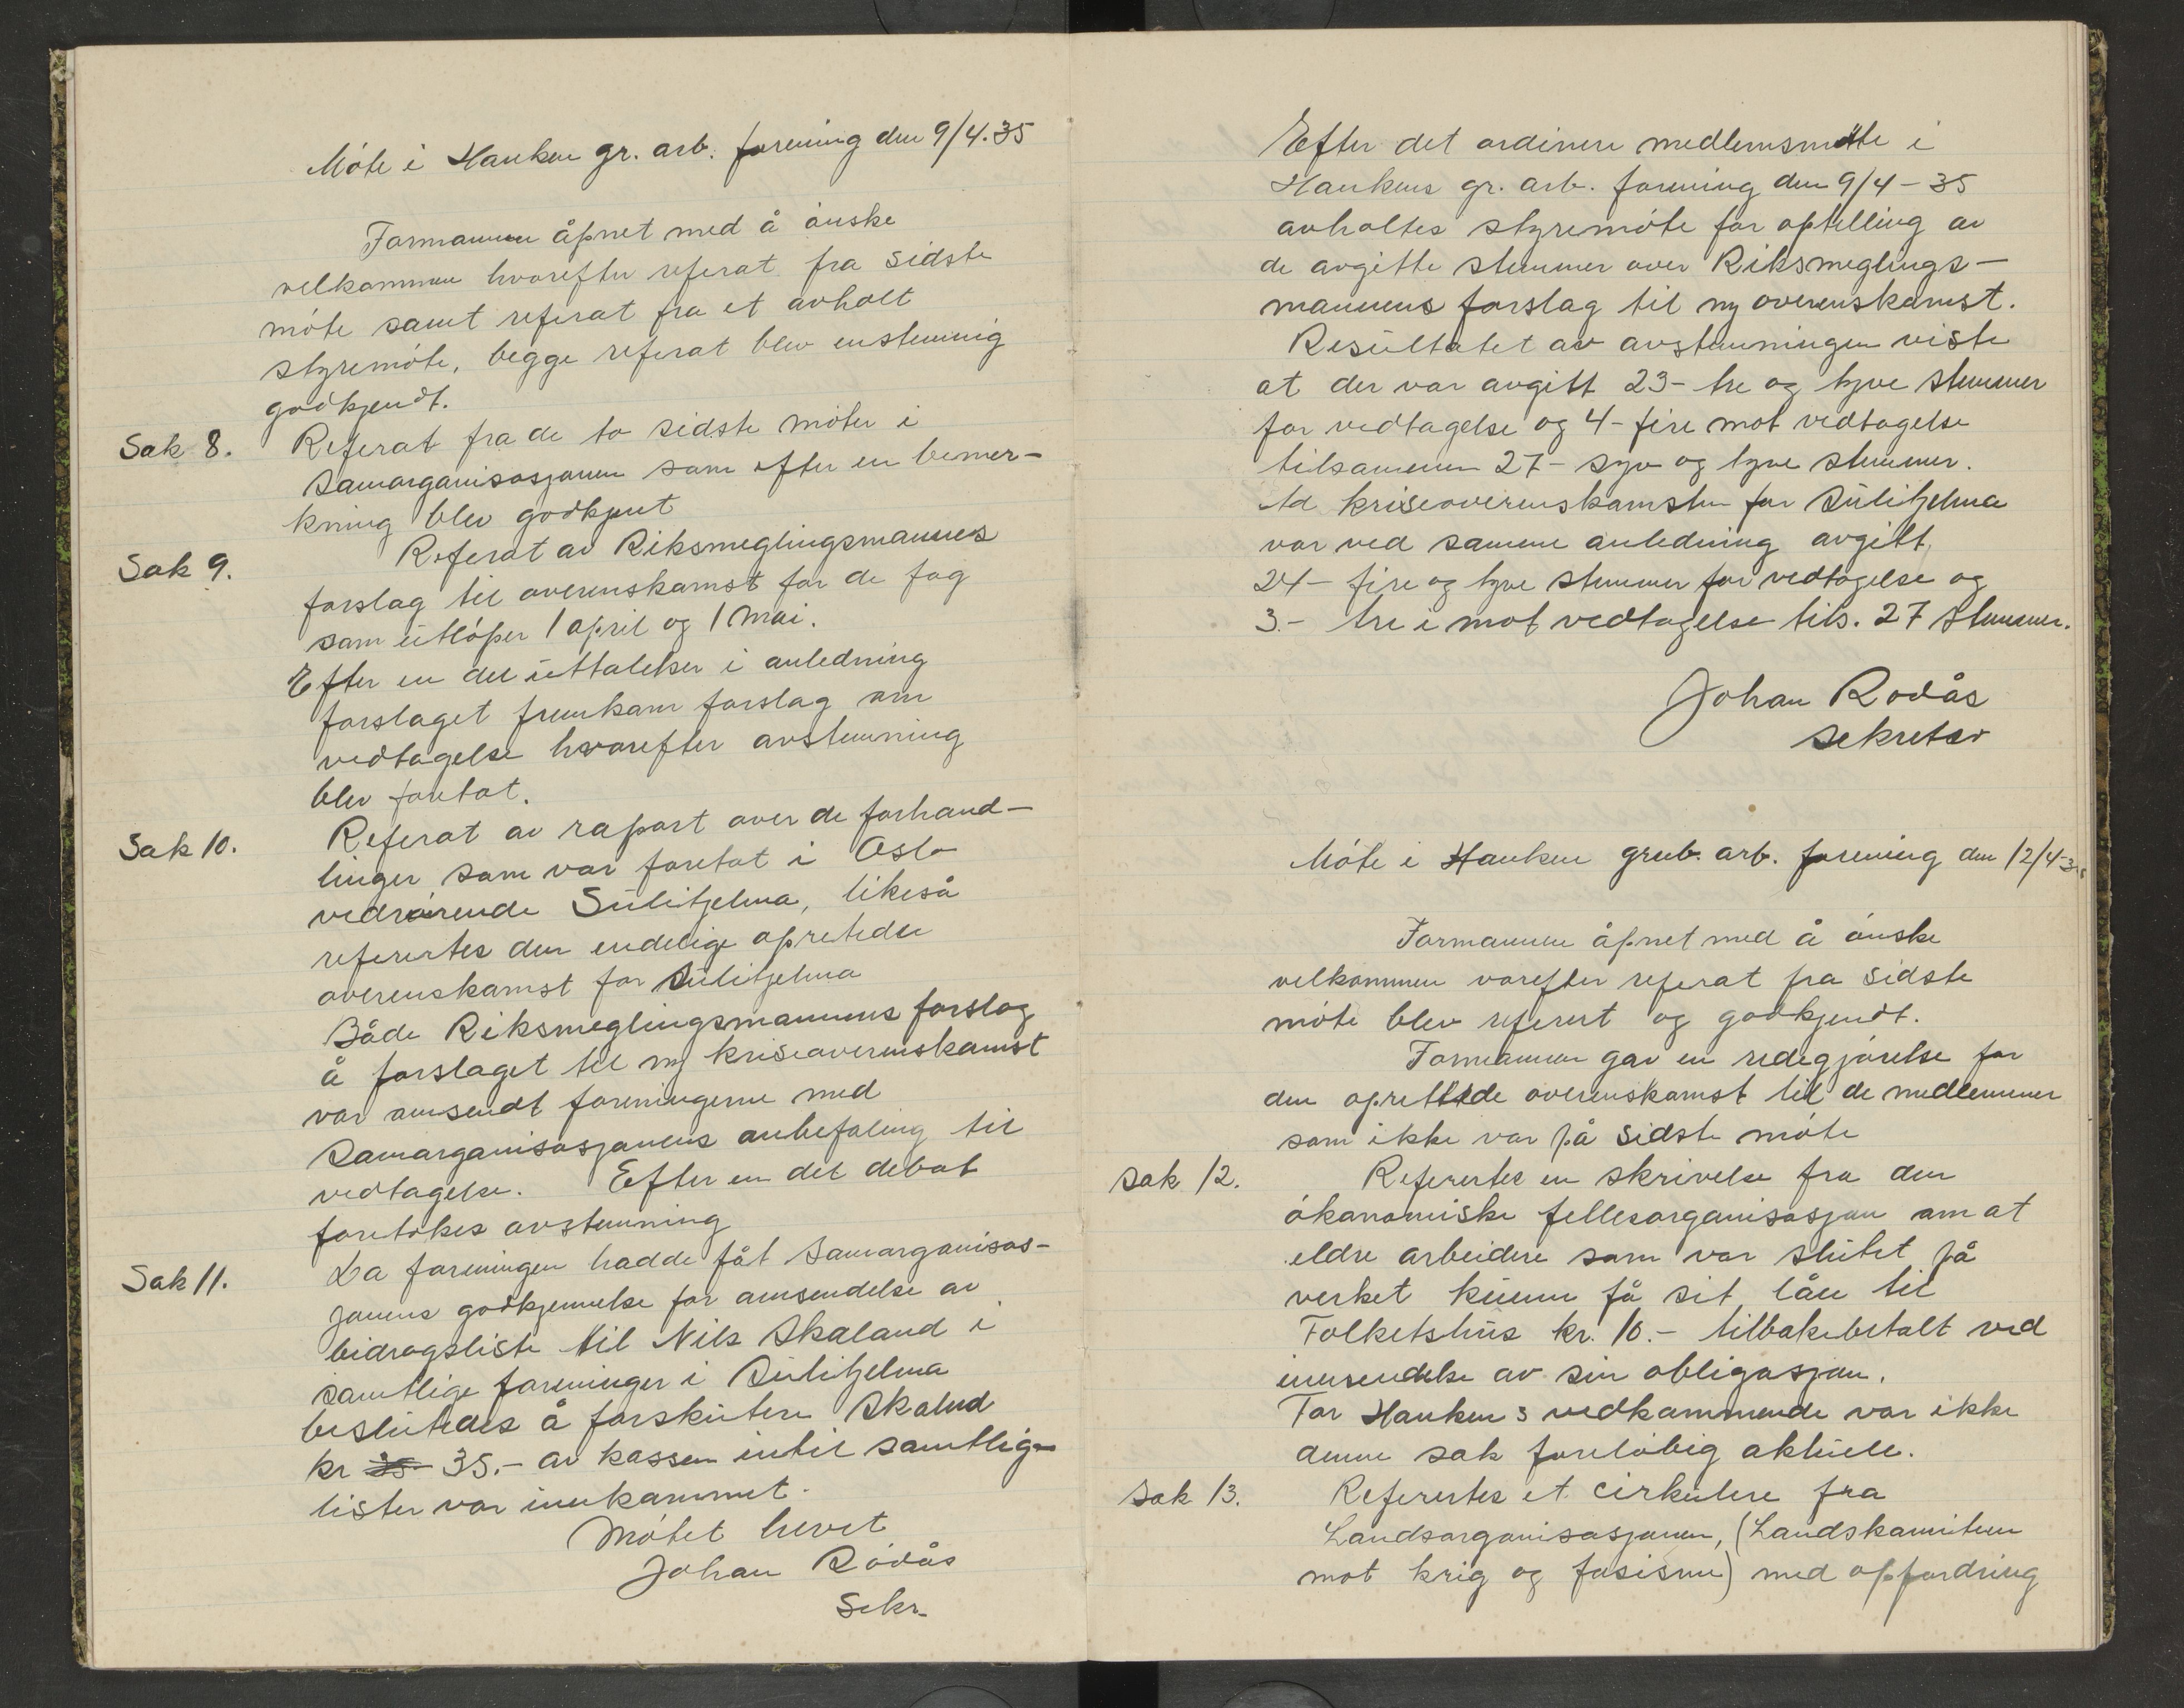 Møte i Hanken gr. arb. forening den 9/4.35
Formannen åpnet med å ønske
velkommen hvorefter referat fra sidste
møte samt referat fra et avholt
styremøte, begge referat blev enstemmig
godkjendt.
Sak 8. Referat fra de to sidste møter i
Samorganisasjonen som efter en bemer-
kning blev godkjent
Sak 9. Referat av Riksmeglingsmannes
forslag til overenskomst for de fag
som utløper 1 april og 1 Mai.
Efter en del uttalelser i anledning
forslaget fremkom forslag om
vedtagelse hvorefter avstemning
blev foretat.
Sak 10. Referat av rapport over de forhand-
linger som var foretat i Oslo
vedrørende Sulitjelma, likeså
refertes den endelige opretede
overenskomst for Sulitjelma
Både Riksmeglingsmannens forslag
å forslaget til ny kriseoverenskomst
var omsendt foreningerne med
Samorganisasjonens anbefaling til
vedtagelse. Efter en del debat
foretokes avstemning
Sak 11. Da foreningen hadde fåt Samorganisas-
jonens godkjennelse for omsendelse av
bidragsliste til Nils Skaland i
samtlige foreninger i Sulitjelma
beslutedes å forskutere Skalnd
kr 35 35.- av kassen intil samtlige
lister var innkommet.
Møtet hevet
Johan Rödås
Sekr.
Efter det ordinere medlemsmøte i
Hankens gr. arb. forening den 9/4-35
avholtes styremøte for optelling av
de avgitte stemmer over Riksmeglings-
mannens forslag til ny overenskomst.
Resultatet av avstemningen viste
at der var avgitt 23- tre og tyve stemmer
for vedtagelse og 4- fire mot vedtagelse
tilsammen 27- syv og tyve stemmer.
Ad kriseoverenskomsten for Sulitjelma
var ved samme anledning avgitt
24- fire og tyve stemmer for vedtagelse og
3.- tre i mot vedtagelse tils. 27 stemmer.
Johan Rodås
Sekretær
Møte i Hanken grub. arb. forening den 12/4-35
Formannen åpnet med å ønske
velkommen vorefter referat fra sidste
møte blev referert og godkjendt.
Formannen gav en redegjørelse for
den oprettede overenskomst til de medlemmer
som ikke var på sidste møte
Sak 12. Refertes en skrivelse fra den
økonomiske fellesorganisasjon om at
eldre arbeidere som var slutet på
verket kunne få sit lån til
Folketshus kr. 10.- tilbakebetalt ved
innsendelse av sin obligasjon.
For Hanken s vedkommende var ikke
denne sak foreløbig aktuele.
Sak 13. Referertes et cirkulere fra
Landsorganisasjonen, (Landskomiteen
mot krig og fasisme) med oppfordring